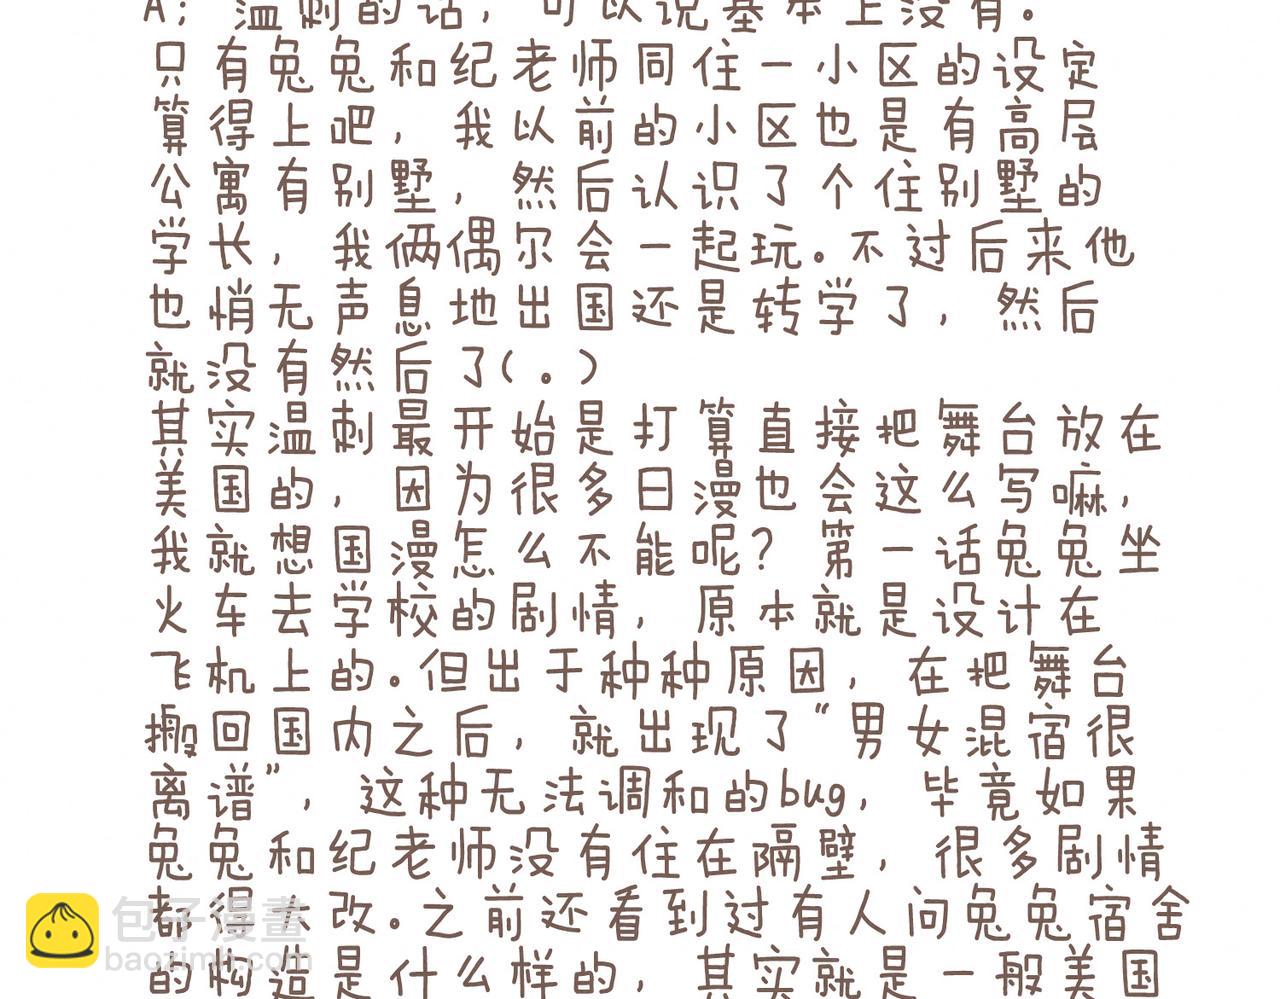 A：温刺的话，可以说基本上没有。
只有兔兔和纪老师同住一小区的设定
算得上吧，我以前的小区也是有高层
公寓有别墅，然后认识了个住别墅的
学长，我俩偶尔会一起玩。不过后来他
也悄无声息地出国还是转学了，然后
就没有然后了(。)
其实温刺最开始是打算直接把舞台放在
美国的，因为很多日漫也会这么写嘛，
我就想国漫怎么不能呢？第一话兔兔坐
火车去学校的剧情，原本就是设计在
飞机上的。但出于种种原因，在把舞台
搬回国内之后，就出现了“男女混宿很
离谱”，这种无法调和的bug，毕竟如果
兔兔和纪老师没有住在隔壁，很多剧情
都得大改。之前还看到过有人问兔兔宿舍
的构造是什么样的，其实就是一般美国
包子漫畫
baozimh.com